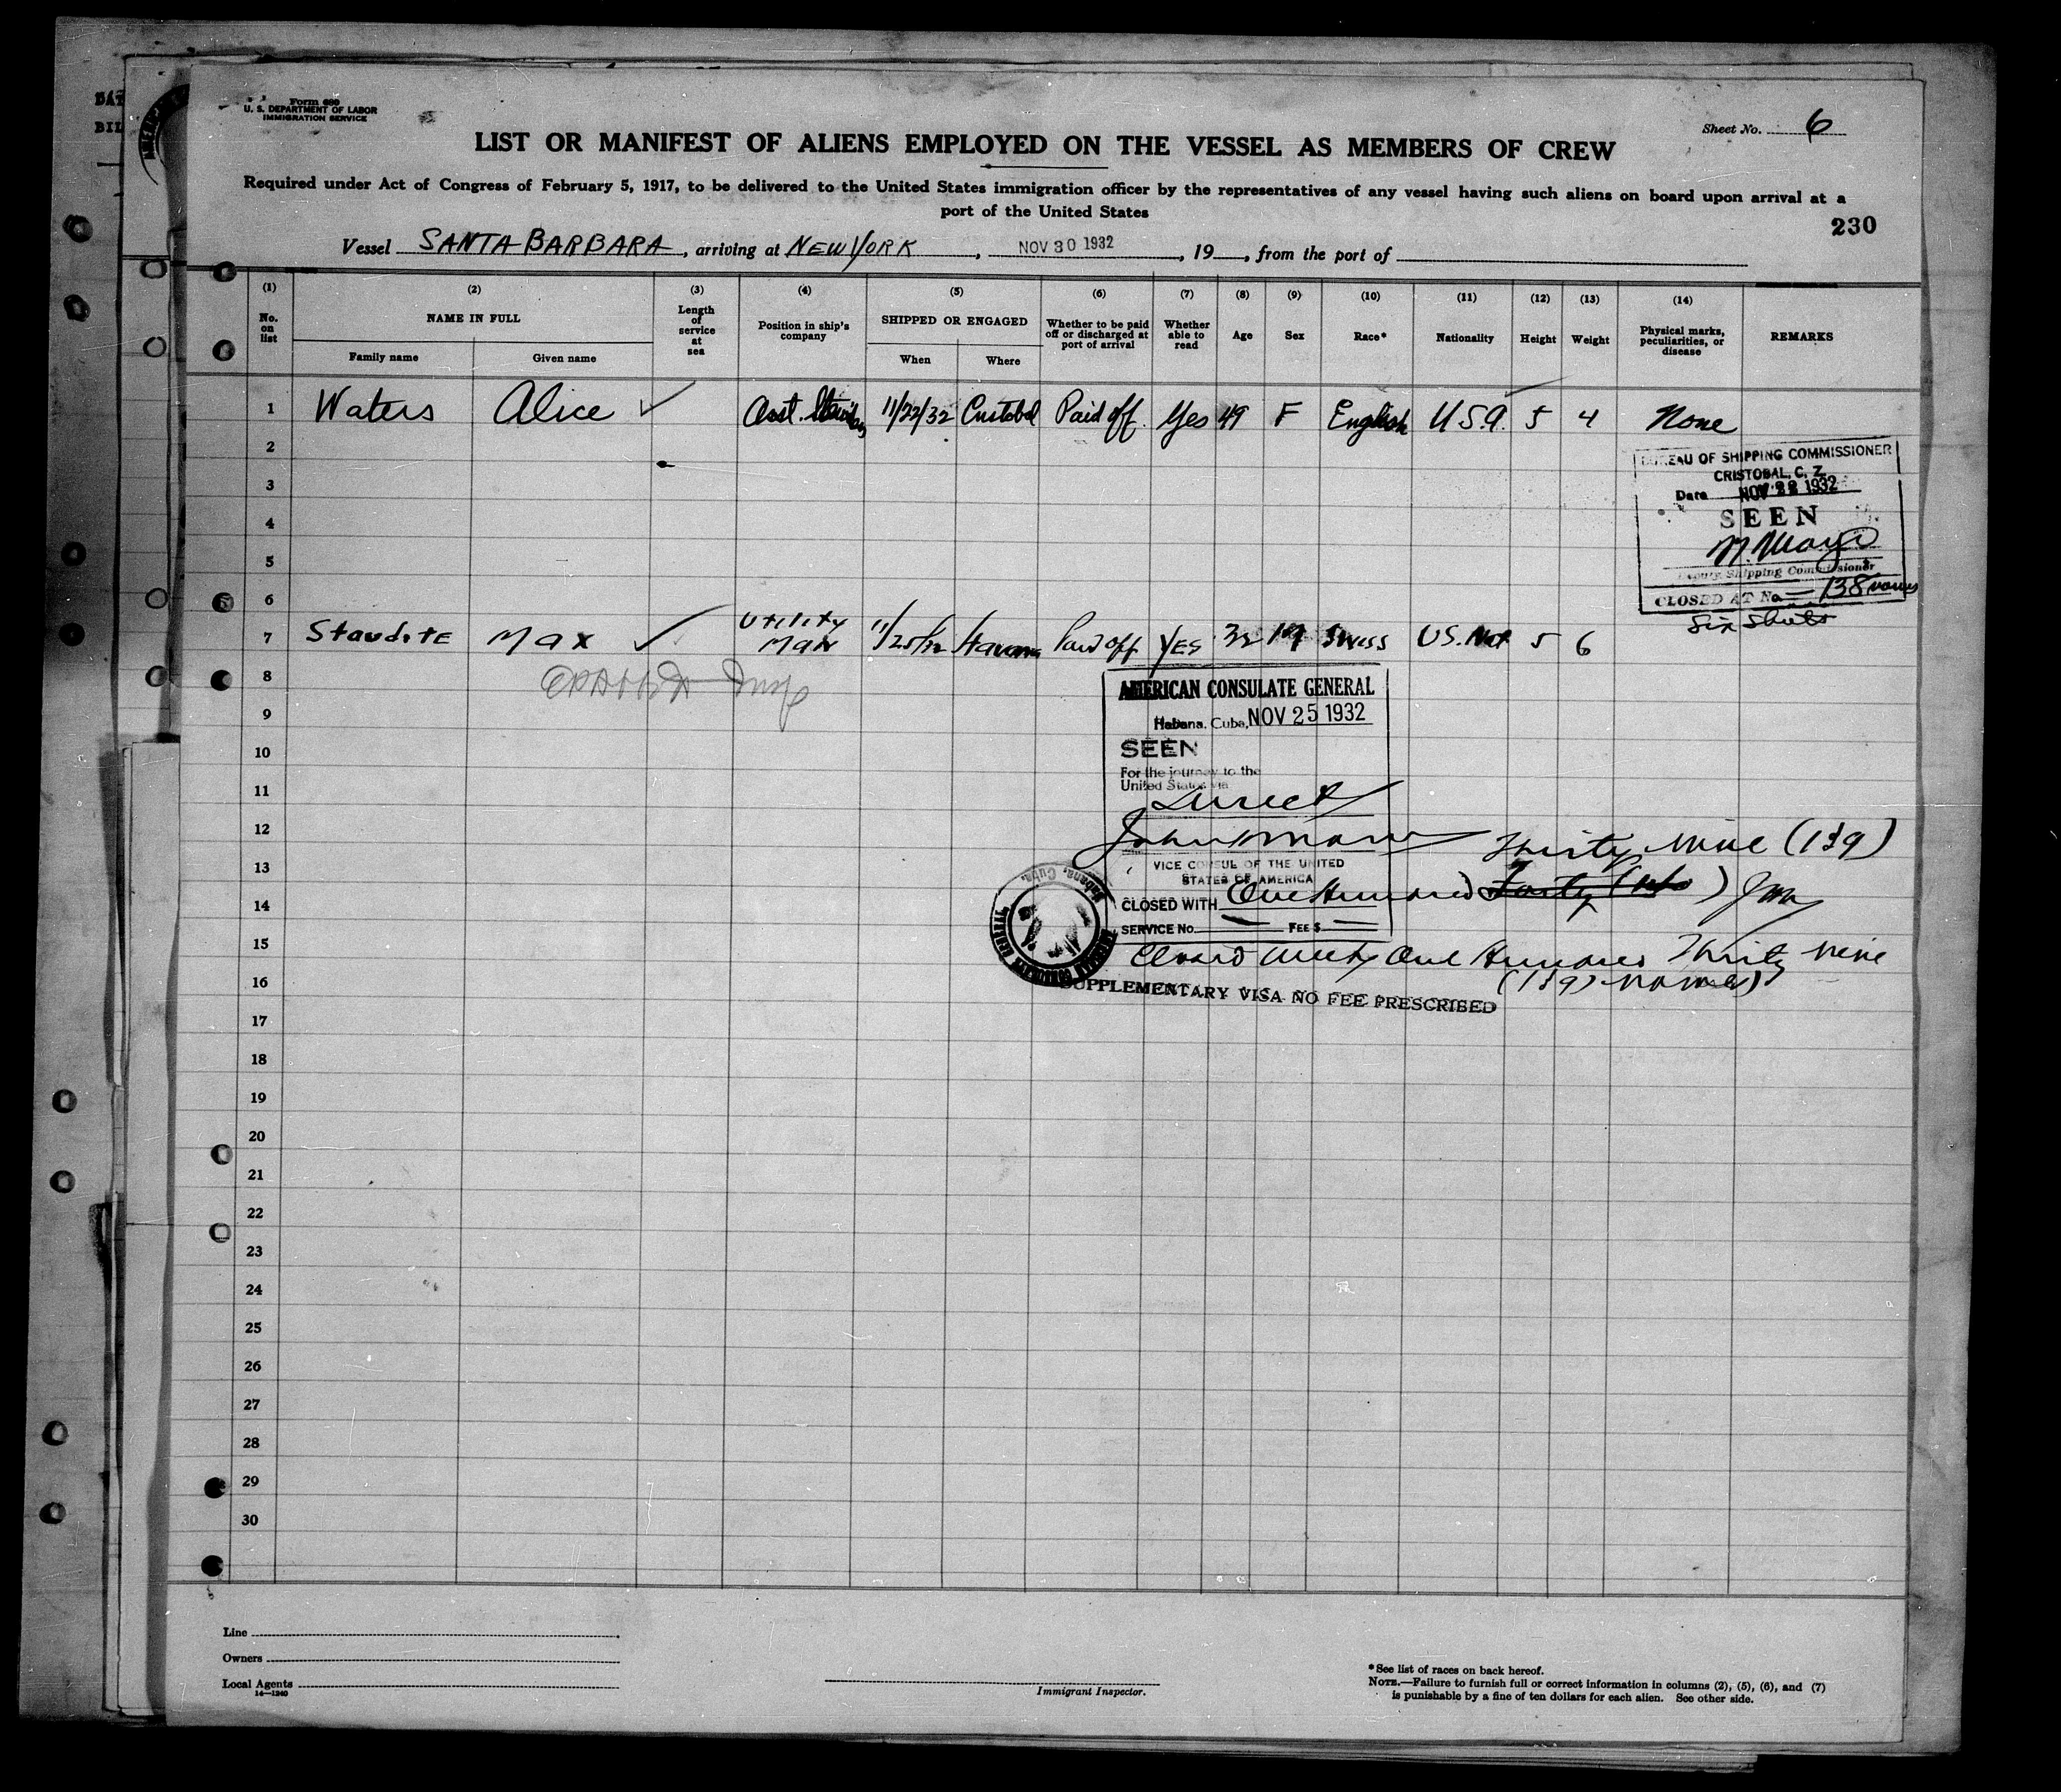 Form 680
U. S. DEPARTMENT OF LABOR
IMMIGRATION SERVICE
Sheet No. 6
LIST OR MANIFEST OF ALIENS EMPLOYED ON THE VESSEL AS MEMBERS OF CREW
Required under Act of Congress of February 5, 1917, to be delivered to the United States immigration officer by the representatives of any vessel having such aliens on board upon arrival at a
port of the United States
230
Vessel SANTA BARBARA, arriving at NEW YORK, NOV 30 1932, 19, from the port of
(1) (2) (3) (4) (5) (6) (7) (8) (9) (10) (11) (12) (13) (14)
No. on list
NAME IN FULL
Family name Given name
Length of service at sea
Position in ship's company
SHIPPED OR ENGAGED
When Where
Whether to be paid off or discharged at port of arrival
Whether able to read
Age
Sex
Race*
Nationality
Height
Weight
Physical marks, peculiarities, or disease
REMARKS
1 Waters Alice ✓ Asst. 11/22/32 Cristobal Paid off. Yes 49 F English U.S.A. 5 4 None
2
BUREAU OF SHIPPING COMMISSIONER
CRISTOBAL, C. Z.
3
Date NOV 22 1932
4
SEEN
5
Deputy Shipping Commissioner
6
CLOSED AT No 138 names
Six Sheets
7 Staudte Max ✓ Utility Man 11/25/32 Havana Paid off Yes 32 M Swiss US. Nat 5 6
8
AMERICAN CONSULATE GENERAL
9
Habana, Cuba, NOV 25 1932
10
SEEN
For the journey to the
11
United States via
Direct
12
Thirty Nine (139)
13
VICE CONSUL OF THE UNITED
STATES OF AMERICA
14
CLOSED WITH One Hundred Forty
SERVICE No. FEE $
15
One Hundred Thirty Nine
16
(139) names)
SUPPLEMENTARY VISA NO FEE PRESCRIBED
17
18
19
20
21
22
23
24
25
26
27
28
29
30
Line
Owners
Local Agents
14—1240
Immigrant Inspector.
*See list of races on back hereof.
NOTE.—Failure to furnish full or correct information in columns (2), (5), (6), and (7)
is punishable by a fine of ten dollars for each alien. See other side.